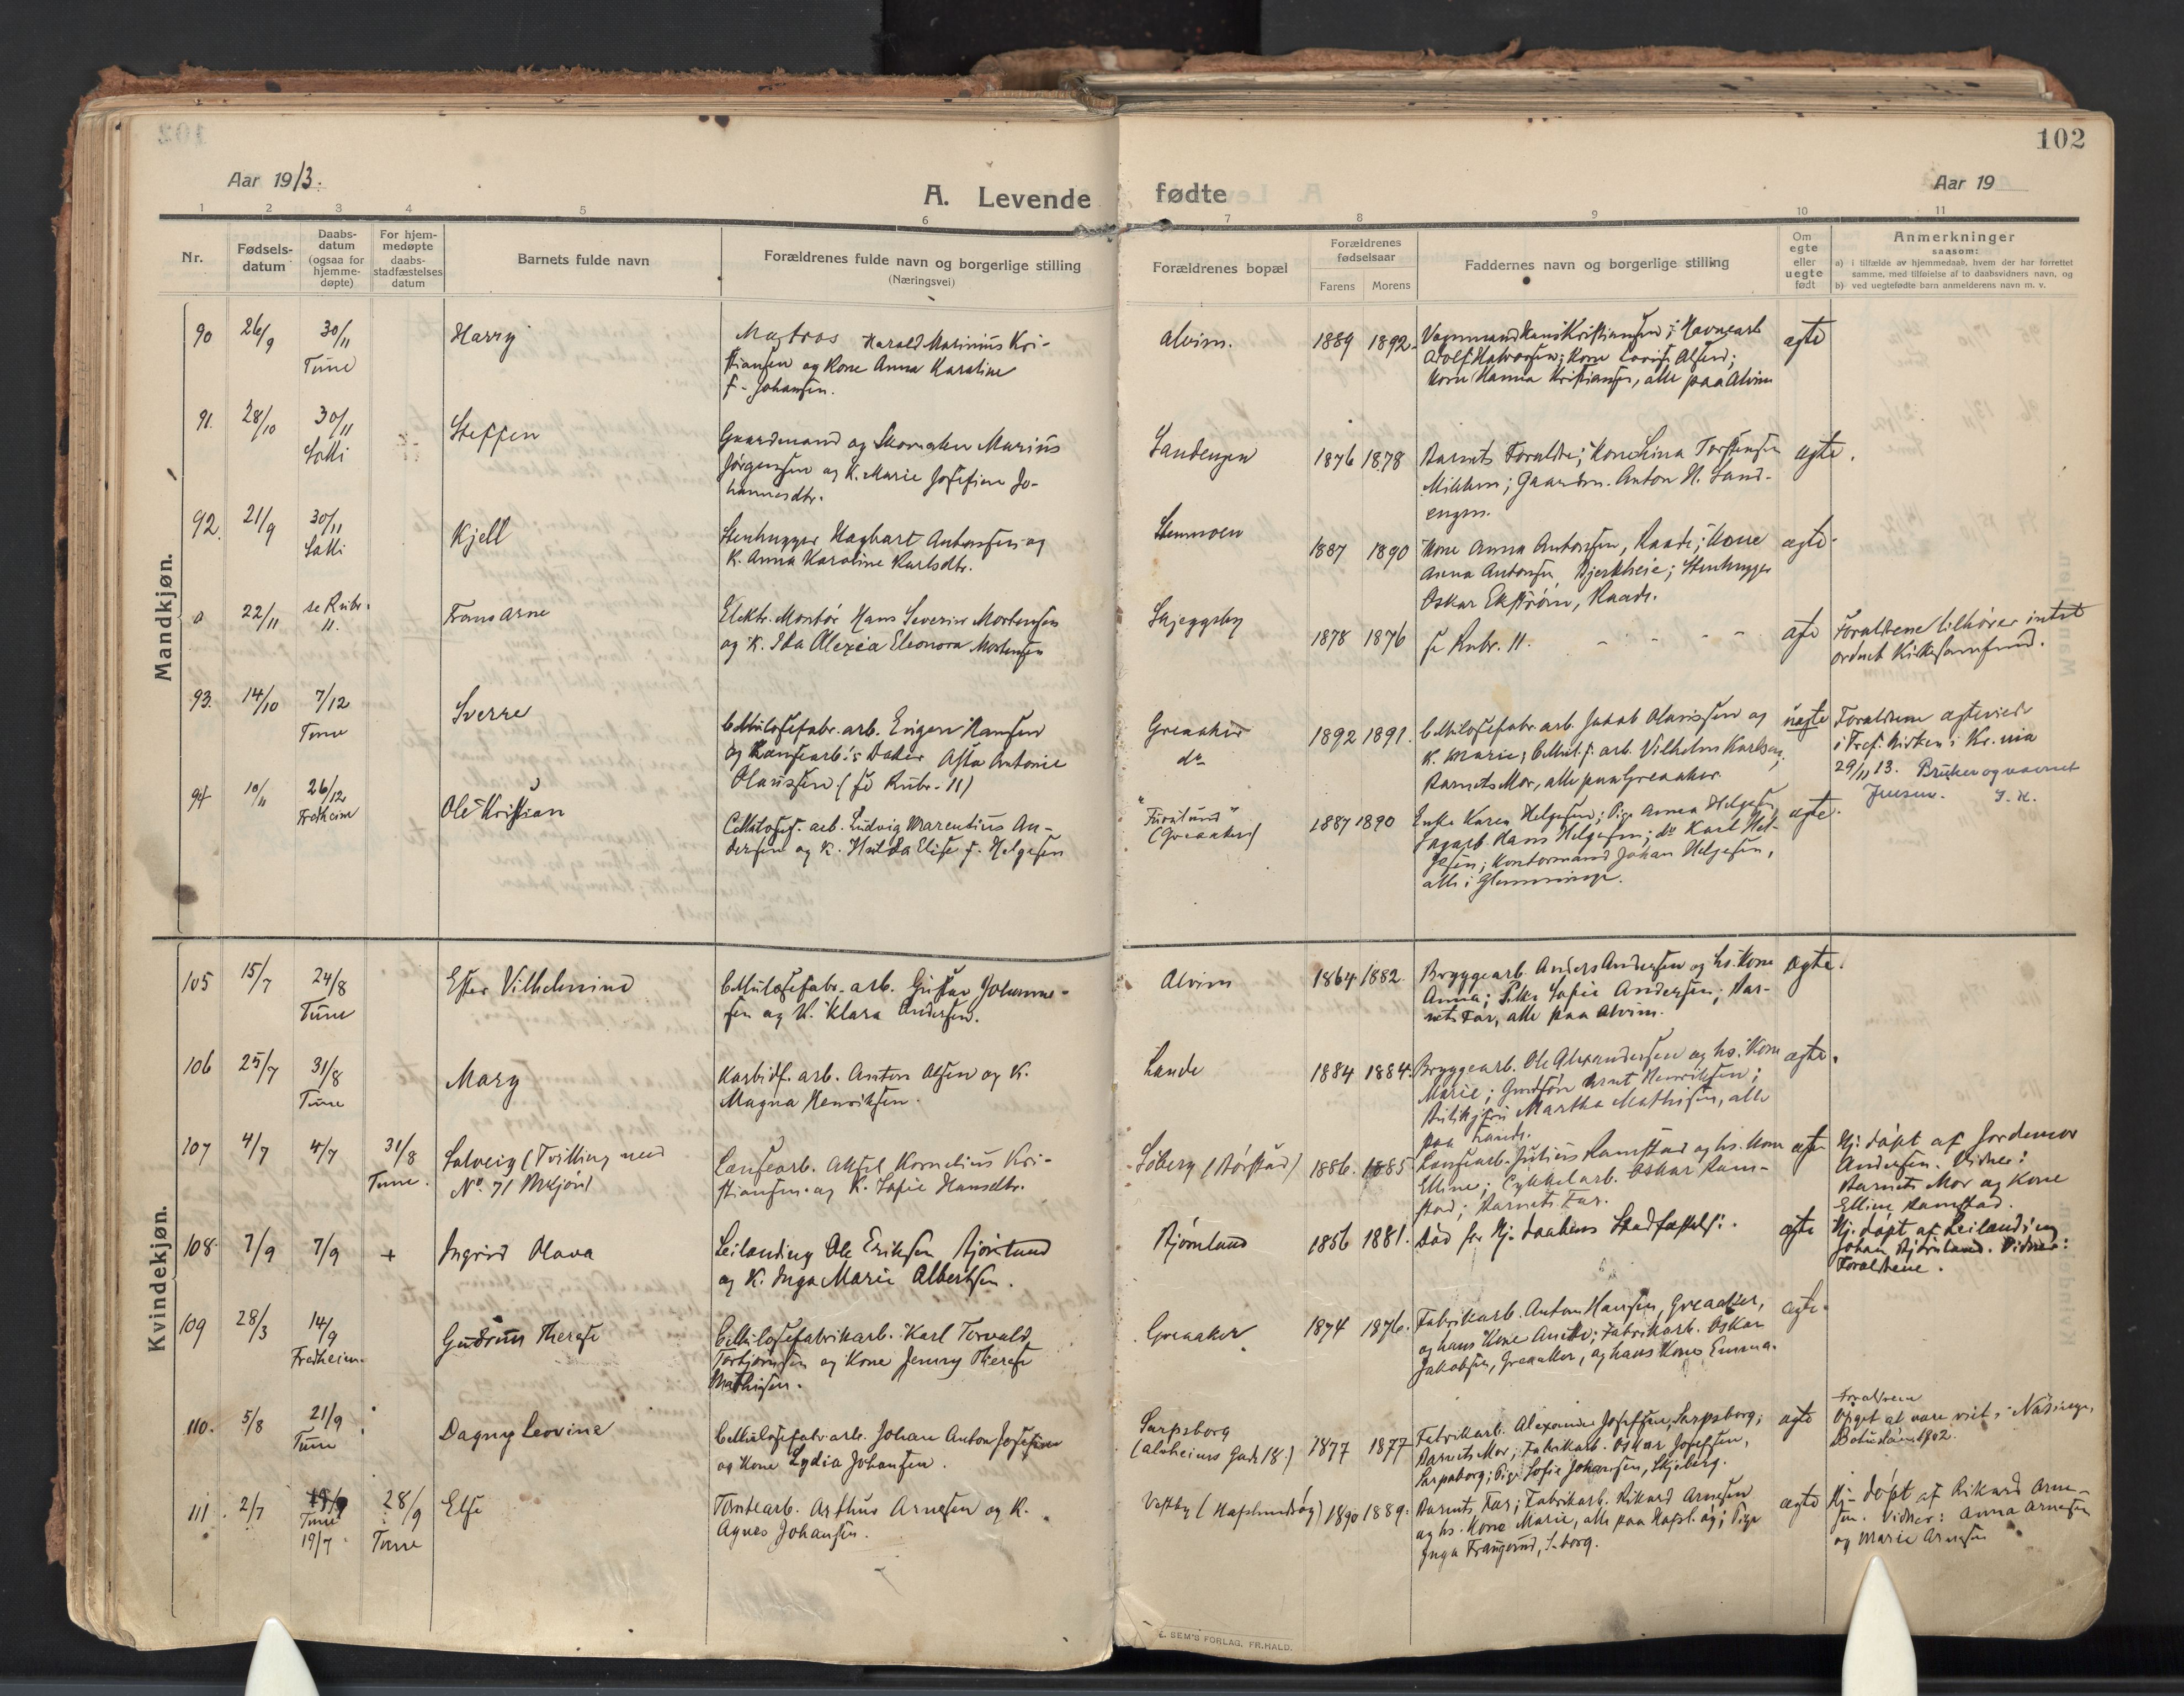 102
Aar 1913.
A. Levende fødte
Aar 19
1 2 3 4 5 6 7 8 9 10 11
Nr.
Fødsels-
datum
Daabs-
datum
(ogsaa for
hjemme-
døpte)
For hjem-
medøpte
daabs-
stadfæstelses
datum
Barnets fulde navn
Forældrenes fulde navn og borgerlige stilling
(Næringsvei)
Forældrenes bopæl
Forældrenes
fødselsaar
Farens Morens
Faddernes navn og borgerlige stilling
Om
egte
eller
uegte
født
Anmerkninger
saasom:
a) i tilfælde av hjemmedaab, hvem der har forrettet
samme, med tilføielse af to daabsvidners navn, og
b) ved uegtefødte barn anmelderens navn m. v.
Mandkjøn.
90 26/9 30/11
Tune
Harry
Matros Harald Marinius Kri-
stiansen og Kone Anna Karoline
f. Johansen.
Alvim.
1889 1892.
Vognmand Hans Kristiansen; Havnearb
Adolf Halvorsen; Kone Lovise Olsen;
Kone Hanna Kristiansen, alle paa Alvim
egte
91. 28/10 30/11
Solli
Steffen
Gaardmand og Skomaker Marius
Jørgensen og K. Marie Josefine Jo-
hannesdtr.
Sandengen
1876 1878
Barnets Foreldre; Kone Lina Torstensen
; Gaardm. Anton H. Sand-
engen.
egte.
92. 21/9 30/11
Solli
Kjell
Stenhugger Hagbart Antonsen og
K. Anna Karoline Karlsdtr.
Stenmoen
1887 1890
Kone Anna Antonsen, Raade; Kone
Anna Antonsen, Bjerkheie; Stenhugger
Oskar Ekstrøm, Raade.
egte
0 22/11 se Rubr.
11.
Frans Arne
Elektr. Montør Hans Severin Mortensen
og K. Ida Alexia Eleonora Mortensen
Skjeggeby
1878 1876
se Rubr. 11. - - - -
egte
Foreldrene tilhører intet
ordnet Kirkesamfund.
93. 14/10 7/12
Tune
Sverre
Cellulosefabr. arb. Eugen Hansen
og Lænsearb.s Datter Asta Antonie
Olaussen (se Rubr. 11)
Greaaker
do
1892 1891.
Cellulosefabr. arb. Jakob Olaussen og
K. Marie; Cellul. f. arb. Vilhelm Karlsen;
Barnets Mor, alle paa Greaaker.
uegte
Foreldrene egteviede
i Tref. Kirken i Kr.nia
29/11 13. Bruker ogsaa navnet
Jensen. J. K.
94 10/11 26/12
Fredheim
Ole Kristian
Cellulosef. arb. Ludvig Marentius An-
dersen og K. Hulda Elise f. Helgesen
"Furulund"
(Greaaker)
1887 1890
Enke Karen Helgesen; Pige Anna Helgesen,
Sagarb. Hans Helgesen; do Karl Hel-
gesen; Kontormand Johan Helgesen,
alle i Glemminge.
egte.
Kvindekjøn.
105 15/7 24/8
Tune
Ester Vilhelmine
Cellulosefabr. arb. Gustav Johanne-
sen og K. Klara Andersen.
Alvim
1864 1882.
Bryggearb. Anders Andersen og hs. Kone
Anna; Pike Sofie Andersen; Bar-
nets Far, alle paa Alvim.
egte.
106 25/7 31/8
Tune
Mary
Karbidf. arb. Anton Olsen og K.
Magna Henriksen.
Lande
1884 1884.
Bryggearb. Ole Alexandersen og hs. Kone
Marie; Arnt Henriksen;
Martha Mathisen, alle
paa Lande.
egte.
107 4/7 4/7 31/8
Tune.
Solveig (Tvilling med
No. 71 Mkjøn)
Lænsearb. Aksel Kornelius Kri-
stiansen og K. Sofie Hansdtr.
Soberg (Borstad)
1886. 1885
Lænsearb. Julius Ramstad og hs. Kone
Elline; Cykkelarb. Oskar Ram-
stad; Barnets Far.
egte
Hj. døpt af Jordemor
Andersen. Vidner:
Barnets Mor og Kone
Elline Ramstad.
108. 7/9 7/9 +
Ingrid Olava
Leilending Ole Eriksen Bjørnland
og K. Inga Marie Albertsen.
Bjørnland
1856 1881.
Død før Hj. daabens Stadfæstelse.
egte
Hj. døpt af Leilending
Johan Bjørnland. Vidner:
Foreldrene.
109 28/3 14/9
Fredheim.
Gudrun Therese
Cellulosefabrikarb. Karl Torvald
Torbjørnsen og Kone Jenny Therese
Mathisen.
Greaaker
1874 1876.
Fabrikarb. Anton Hansen, Greaaker,
og hans Kone Anette; Fabrikarb. Oskar
Jakobsen, Greaaker, og hans Kone Emma.
egte.
110. 5/8 21/9
Tune
Dagny Leovine
Cellulosefabr. arb. Johan Anton Josefsen
og Kone Lydia Johansen.
Sarpsborg
(Alvheims Gade 18.)
1877 1877
Fabrikarb. Alexander Josefsen, Sarpsborg;
Barnets Mor; Fabrikarb. Oskar Josefsen,
Sarpsborg; Pige Sofie Johansen, Skjeberg.
egte
Foreldrene
Opget at være viet i Näsinge,
Bohuslän 1902.
111. 2/7 19/9
Tune
19/7
28/9
Tune
Else
Tomtearb. Arthur Arnesen og K.
Agnes Johansen.
Vestby (Hafslundsøy)
1890 1889.
Barnets Far; Fabrikarb. Rikard Arnesen
og hs. Kone Marie, alle paa Hafsl. øy; Pige
Inga, S.borg.
egte
Hj. døpt af Rikard Arne-
sen. Vidner: Anna Arnesen
og Marie Arnesen
E. SEM'S FORLAG, FR.HALD.